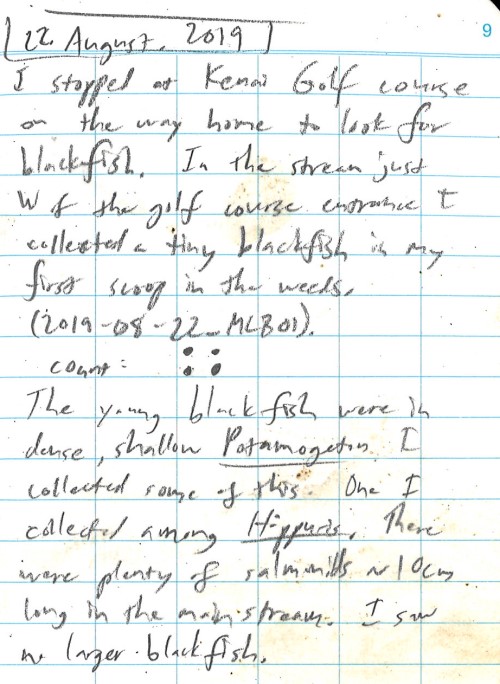 9
22. August. 2019
I stopped at Kenai Golf course
on the way home to look for
blackfish. In the stream just
W of the golf course entrance I
collected a tiny blackfish in my
first scoop in the weeds.
(2019-08-22_MLB01).
count: ::
The young blackfish were in
dense, shallow Potamogeton. I
collected some of this. One I
collected among Hippuris. There
were plenty of salmonids ~10cm
long in the main stream. I saw
no larger blackfish.